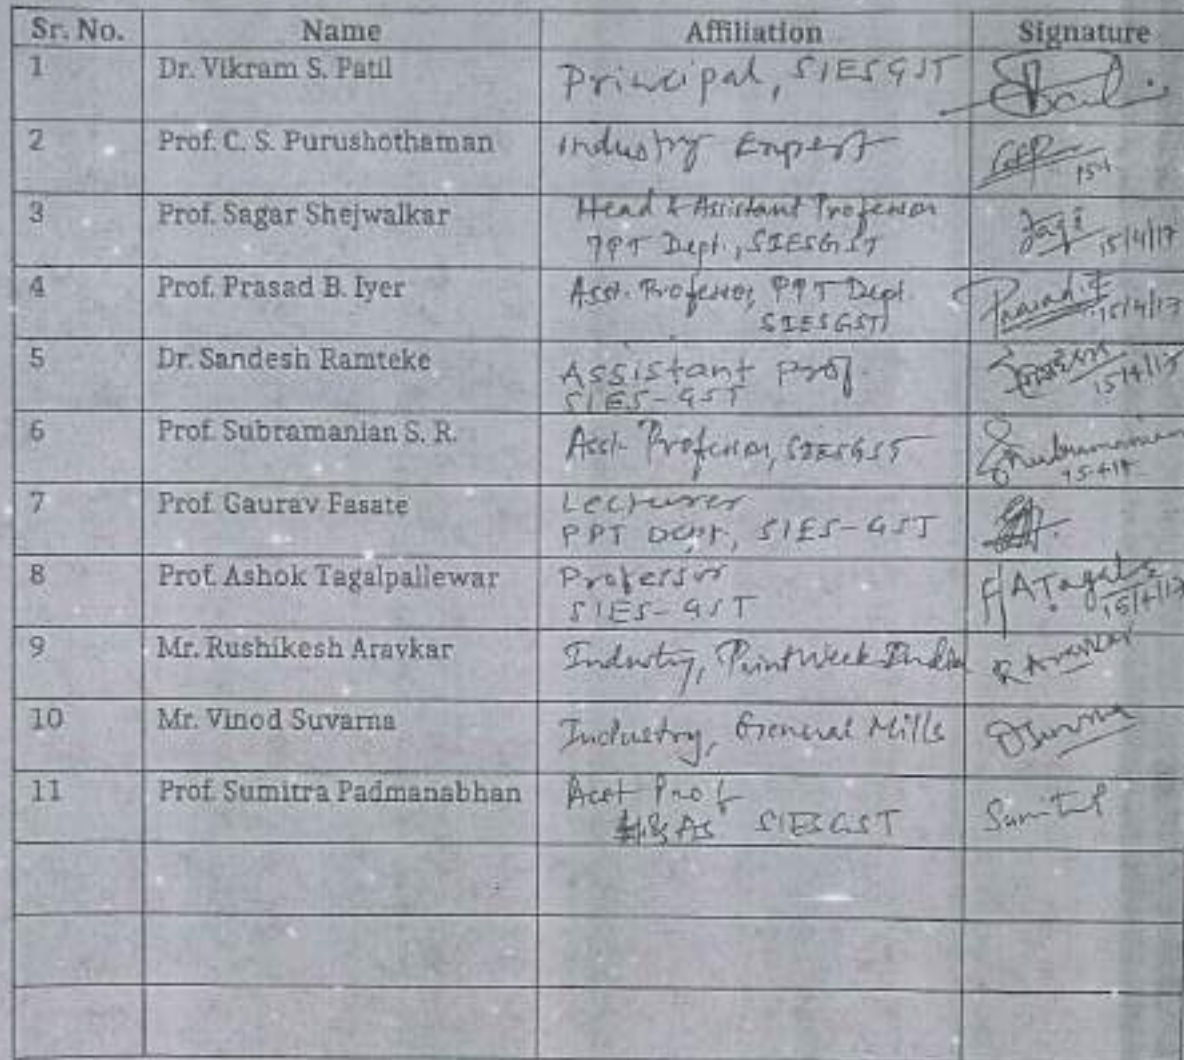 Sr. No. Name Affiliation Signature
1 Dr. Vikram S. Patil Principal, SIESGST
2 Prof. C. S. Purushothaman Industry Expert
3 Prof. Sagar Shejwalkar Head & Assistant Professor
PPT Dept., SIESGST 15/4/17
4 Prof. Prasad B. Iyer Asst. Professor, PPT Dept. Prasad I
SIESGST 15/4/17
5 Dr. Sandesh Ramteke Assistant Prof.
SIES-GST 15/4/17
6 Prof. Subramanian S. R. Asst. Professor, SIESGST Subramanian
7 Prof. Gaurav Fasate Lecturer
PPT Dept., SIES-GST
8 Prof. Ashok Tagalpallewar Professor
SIES-GST 15/4/17
9 Mr. Rushikesh Aravkar Industry, PrintWeek India R Aravkar
10 Mr. Vinod Suvarna Industry, General Mills
11 Prof. Sumitra Padmanabhan Asst Prof
H&AS SIESGST